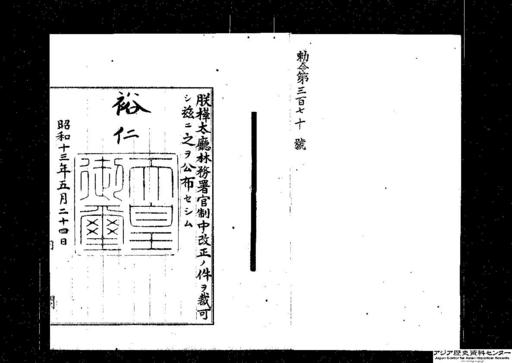 勅令第三百七十號
朕樺太廳林務署官制中改正ノ件ヲ裁可
シ茲ニ之ヲ公布セシム
裕仁
天皇御璽
昭和十三年五月二十四日
アジア歴史資料センター
Japan Center for Asian Historical Records